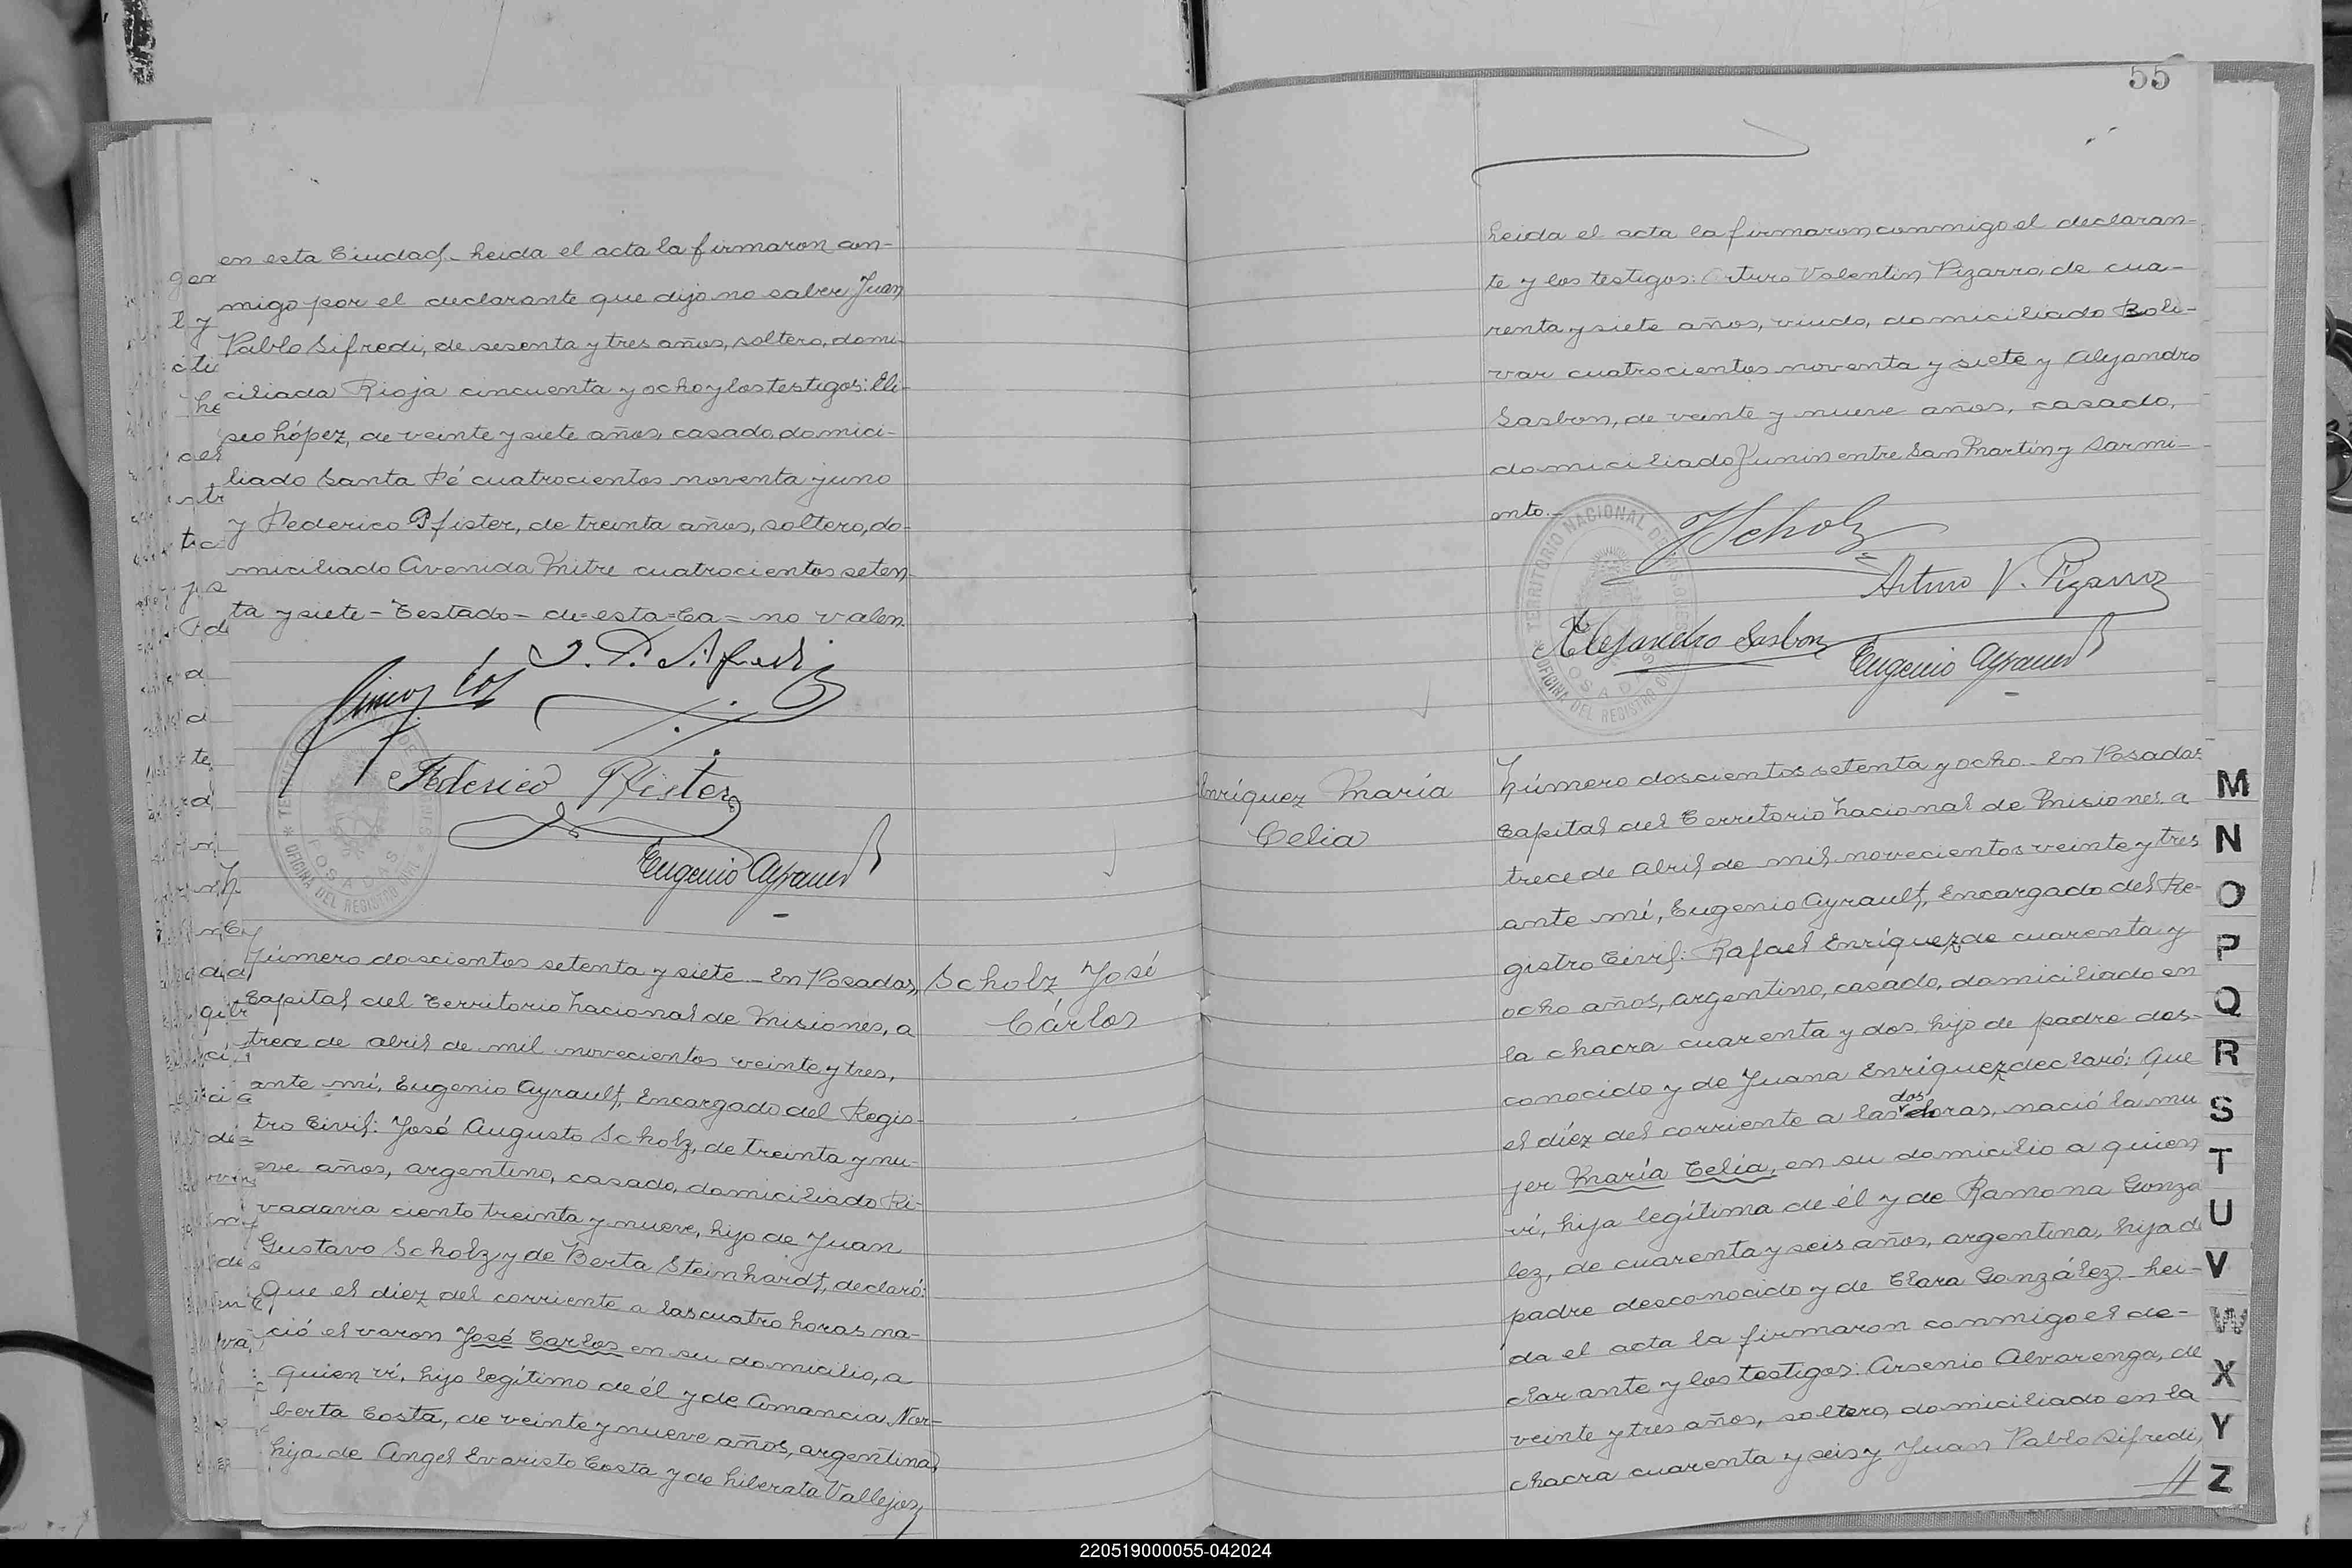 en esta Ciudad - Leida el acta la firmaron con-
migo por el declarante que dijo no saber Juan
Pablo Sifredi, de sesenta y tres años, soltero, domi-
ciliado Rioja cincuenta y ocho y los testigos: Eli-
seo López, de veinte y siete años, casado, domici-
liado Santa Fé cuatrocientos noventa y uno
y Federico Pfister, de treinta años, soltero, do-
miciliado Avenida Mitre cuatrocientos seten-
ta y siete - Testado - de=esta=Ca= no valen.
J. P. Sifredi
Federico Pfister
Eugenio Ayrault
TERRITORIO NACIONAL DE MISIONES
POSADAS
OFICINA DEL REGISTRO CIVIL
Scholz José
Cárlos
Número doscientos setenta y siete - En Posadas,
Capital del Territorio Nacional de Misiones, a
trece de abril de mil novecientos veinte y tres,
ante mí, Eugenio Ayrault, Encargado del Regis-
tro Civil: José Augusto Scholz, de treinta y nu-
eve años, argentino, casado, domiciliado Ri-
vadavia ciento treinta y nueve, hijo de Juan
Gustavo Scholz y de Berta Steinhardt, declaró:
Que el diez del corriente a las cuatro horas na-
ció el varon José Carlos en su domicilio, a
quien ví, hijo legítimo de él y de Amancia Nor-
berta Costa, de veinte y nueve años, argentina,
hija de Angel Evaristo Costa y de Liberata Vallejos
55
Leida el acta la firmaron conmigo el declaran-
te y los testigos: Arturo Valentin Pizarro, de cua-
renta y siete años, viudo, domiciliado Boli-
var cuatrocientos noventa y siete y Alejandro
Sasbon, de veinte y nueve años, casado,
domiciliado Junin entre San Martin y Sarmi-
ento.-
JScholz
Arturo V. Pizarro
Alejandro Sasbon
Eugenio Ayrault
TERRITORIO NACIONAL DE MISIONES
POSADAS
OFICINA DEL REGISTRO CIVIL
Enríquez María
Celia
Número doscientos setenta y ocho - En Posadas
Capital del Territorio Nacional de Misiones a
trece de Abril de mil novecientos veinte y tres
ante mí, Eugenio Ayrault, Encargado del Re-
gistro Civil: Rafael Enríquez de cuarenta y
ocho años, argentino, casado, domiciliado en
la chacra cuarenta y dos, hijo de padre des-
conocido y de Juana Enríquez declaró: Que
el díez del corriente a las dos horas, nació la mu
jer María Celia, en su domicilio a quien
ví, hija legítima de él y de Ramona Gonza
lez, de cuarenta y seis años, argentina, hija de
padre desconocido y de Clara González - Lei-
da el acta la firmaron conmigo el de-
clarante y los testigos: Arsenio Alvarenga, de
veinte y tres años, soltero, domiciliado en la
chacra cuarenta y seis y Juan Pablo Sifredi,
M
N
O
P
Q
R
S
T
U
V
W
X
Y
Z
220519000055-042024